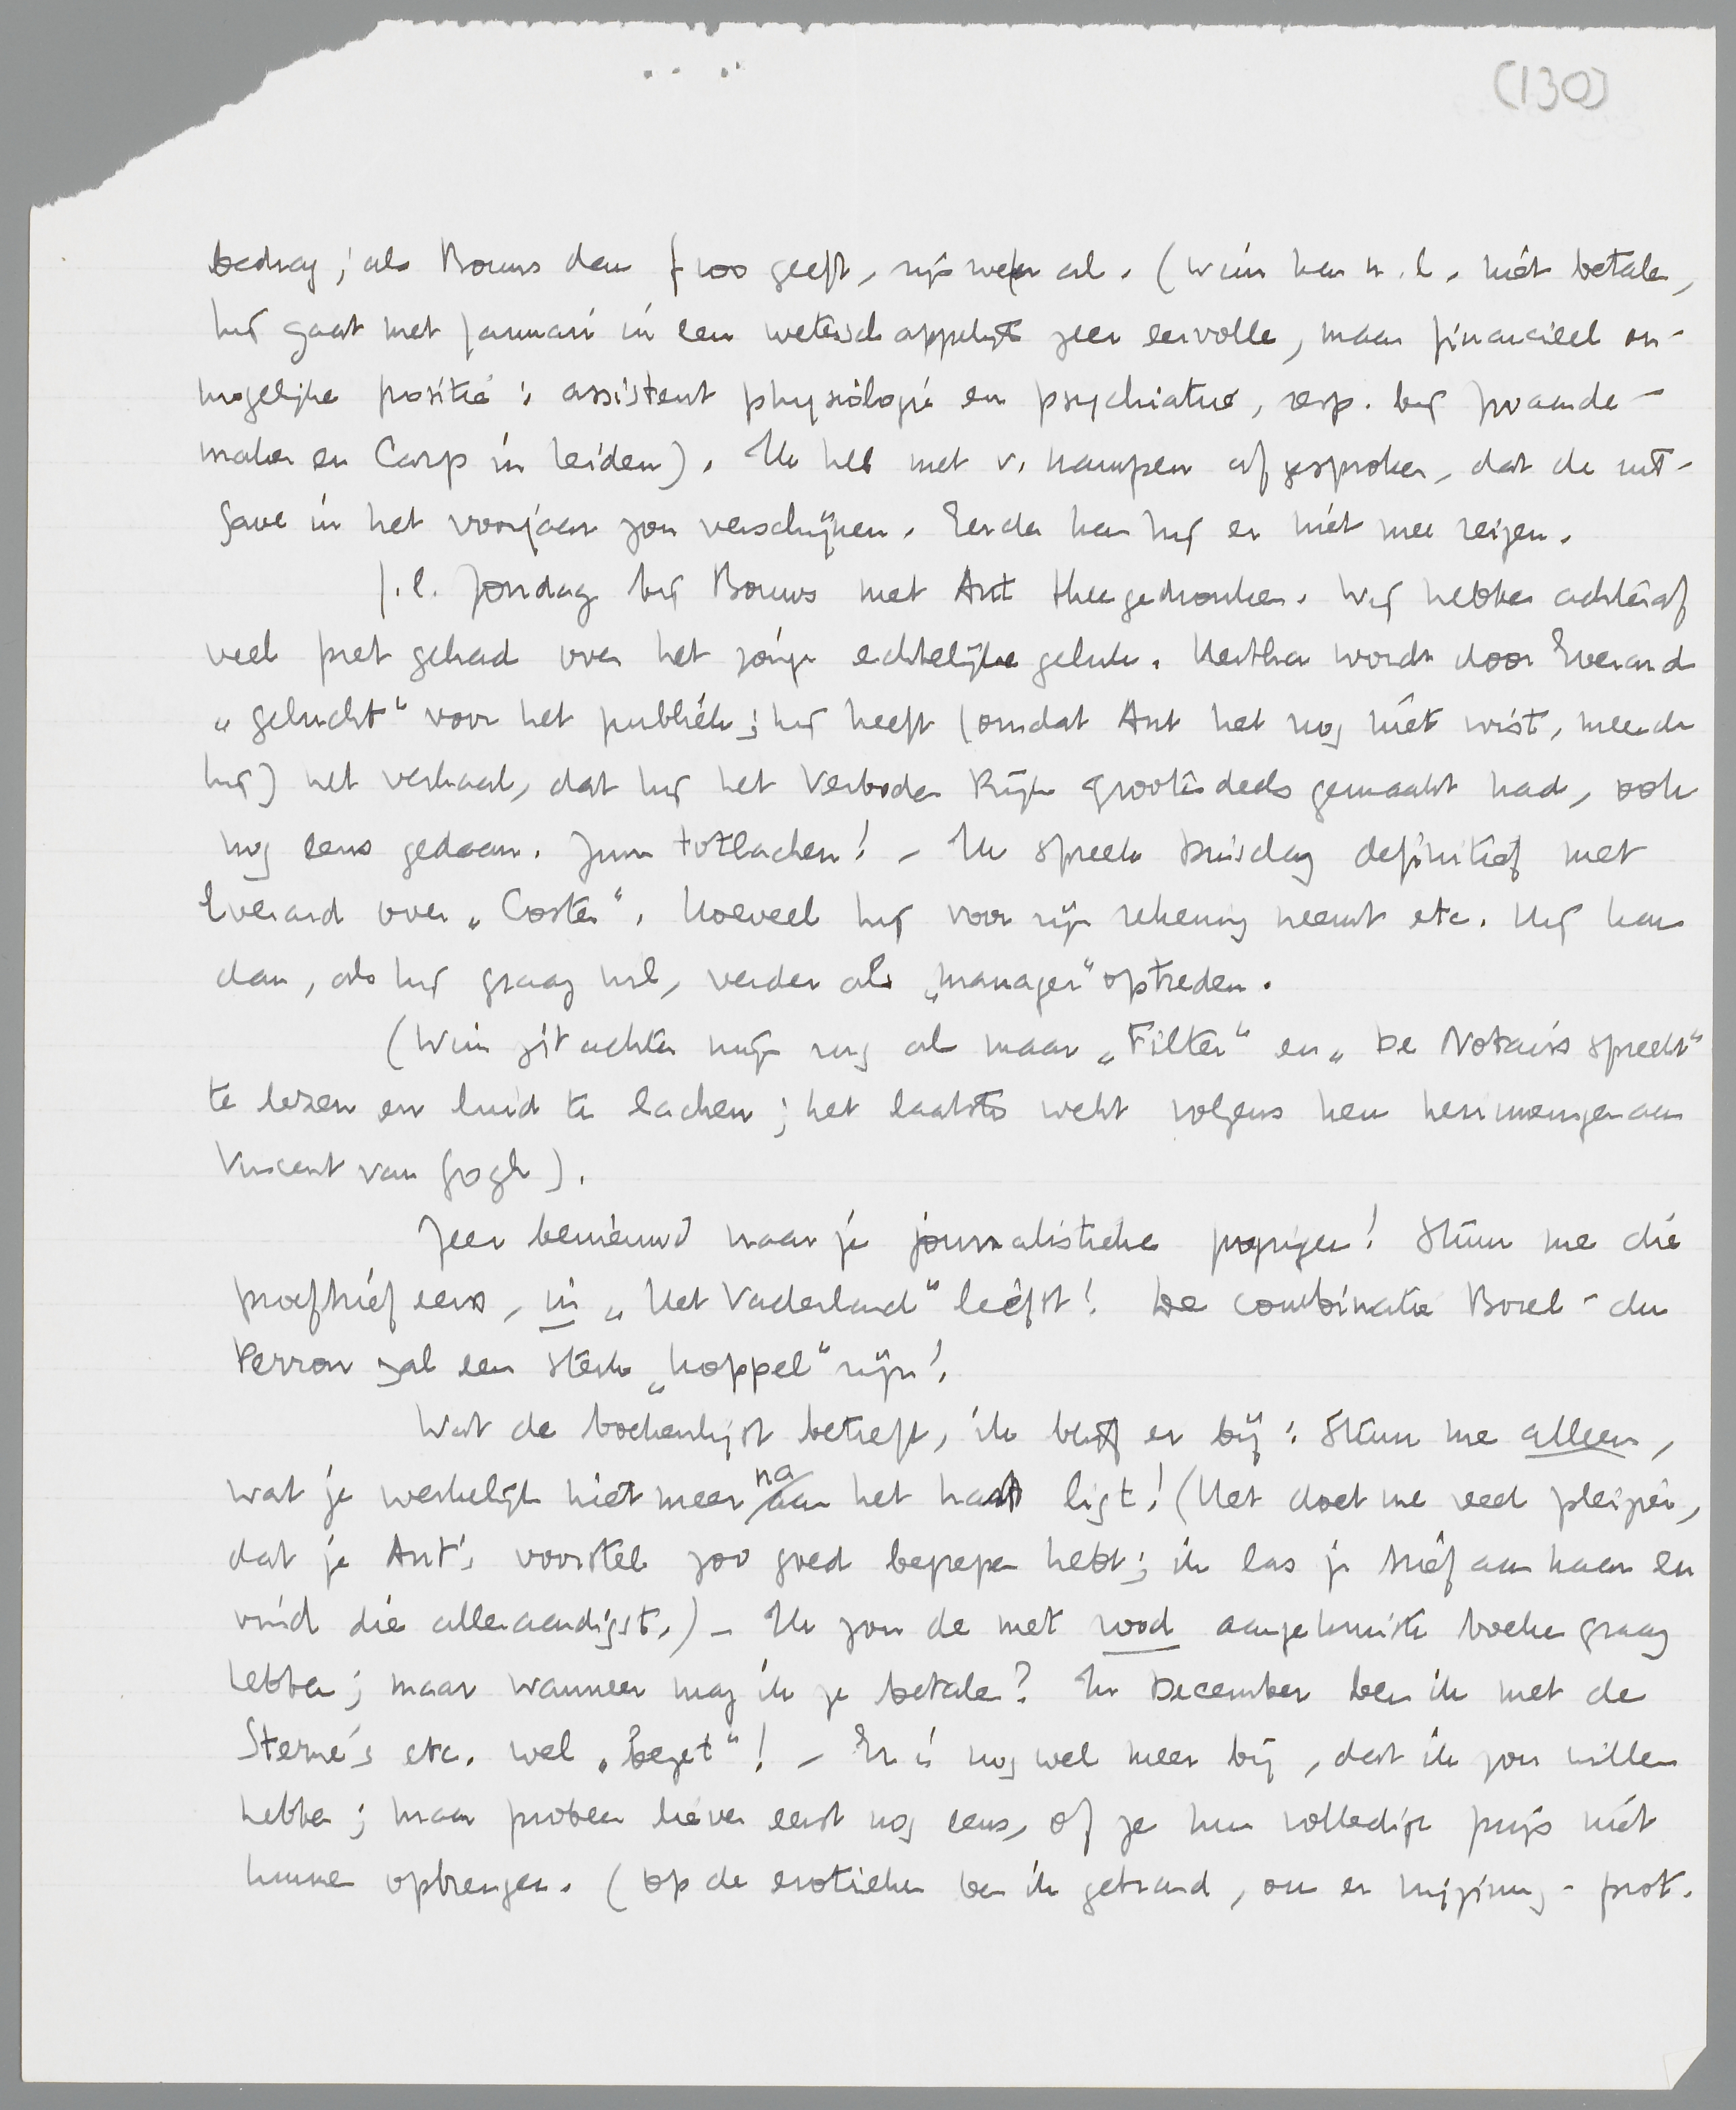 (130)
bedrag; als Bouws dan f 100 geeft, zijn we er al. (Wim kan n.l. niet betalen,
hij gaat met Januari in een wetenschappelijk zeer eervolle, maar financieel on-
mogelijke positie: assistent physiologie en psychiatrie, resp. bij Zwaarde-
maker en Carp in Leiden). Ik heb met v. Kampen afgesproken, dat de uit-
gave in het voorjaar zou verschijnen. Eerder kan hij er niet mee reizen.
j.l. Zondag bij Bouws met Ant thee gedronken. Wij hebben achteraf
veel pret gehad over het jonge echtelijke geluk. Hertha wordt door Everard
„gelucht“ voor het publiek; hij heeft (omdat Ant het nog niet wist, meende
hij) het verhaal, dat hij het Verboden Rijk grootendeels gemaakt had, ook
nog eens gedaan. Zum totlachen! – Ik spreek Dinsdag definitief met
Everard over „Coster“. Hoeveel hij voor zijn rekening neemt etc. Hij kan
dan, als hij graag wil, verder als „manager“ optreden.
(Wim zit achter mijn rug al maar „Filter“ en „De Notaris spreekt“
te lezen en luid te lachen; het laatste wekt volgens hem herinneringen aan
Vincent van Gogh).
Zeer benieuwd naar je journalistieke pogingen! Stuur me die
proefbrief eens, in „Het Vaderland“ liefst! De combinatie Borel-du
Perron zal een sterk „koppel“ zijn!
Wat de boekenlijst betreft, ik blijf er bij: stuur me alleen,
wat je werkelijk niet meer na aan het hart ligt! (Het doet me veel pleizier,
dat je Ant's voorstel zoo goed begrepen hebt; ik las je brief aan haar en
vind die alleraardigst.) – Ik zou de met rood aangekruiste boeken graag
hebben; maar wanneer mag ik je betalen? In December ben ik met de
Sterne's etc. wel „bezet“! – Er is nog wel meer bij, dat ik zou willen
hebben; maar probeer liever eerst nog eens, of ze hun volledige prijs niet
kunnen opbrengen. (Op de erotieken ben ik gebrand, om er mijzinnig-prot.